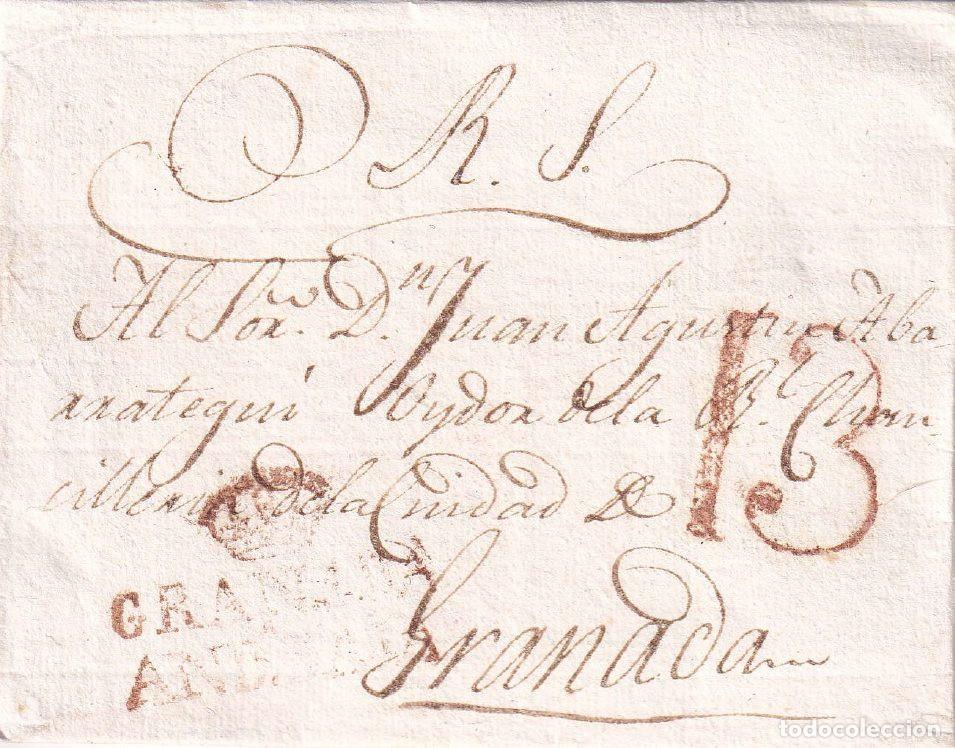 R. S.
Al Sor. Dn. Juan Agustin Aba
rrategui Oydor dela Rl. Chan-
cilleria dela Ciudad De
Granada
13
GRANADA
ANDALUCIA
todocoleccion